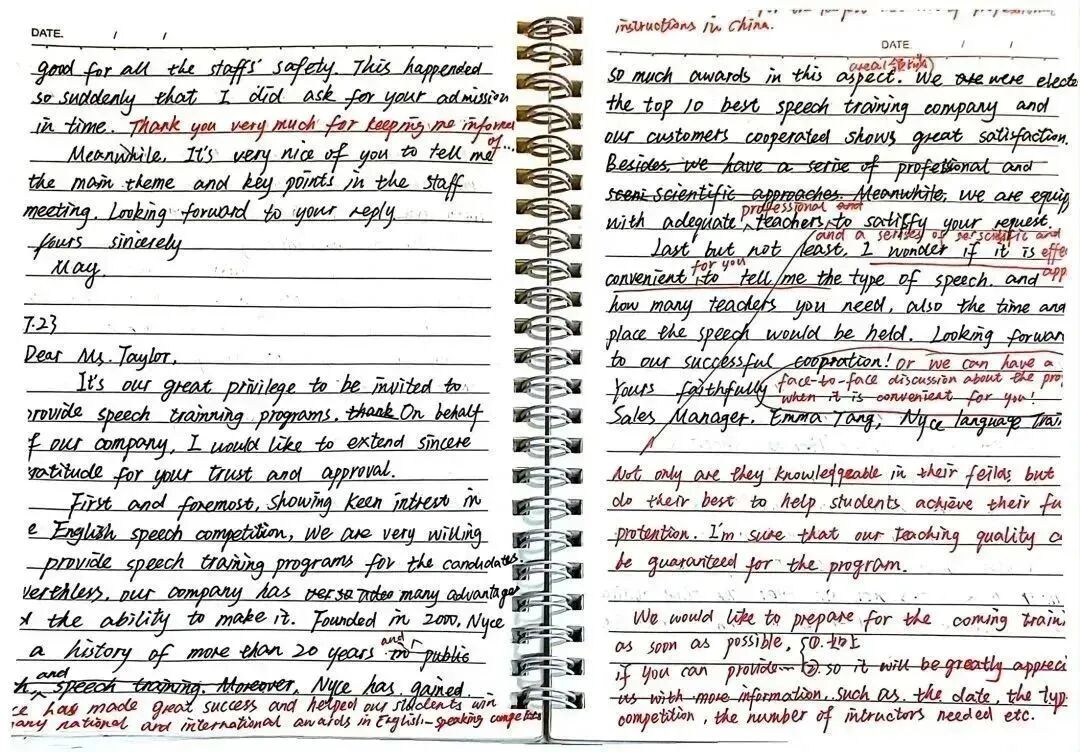 DATE. / /
good for all the staffs' safety. This happended
so suddenly that I did ask for your admission
in time. Thank you very much for keeping me informe
of...
Meanwhile, It's very nice of you to tell me
the main theme and key points in the staff
meeting. Looking forward to your reply
yours sincerely
May
7.23
Dear Ms. Taylor,
It's our great privilege to be invited to
rovide speech trainning programs. thank On behalf
f our company, I would like to extend sincere
ratitude for your trust and approval.
First and foremost, showing keen intrest in
e English speech competition, we are very willing
provide speech training programs for the candidates.
verthless, our company has many advantages
the ability to make it. Founded in 2000, Nyce
and
a history of more than 20 years in public
and
h speech training. Moreover, Nyce has gained
ce has made great success and helped our students win
any national and international awards in English-speaking
instructions in China.
DATE / /
area(领域)
so much awards in this aspect. We are were electe
the top 10 best speech training company and
our customers cooperated shows great satisfaction.
Besides, we have a serise of profetional and
scientific approaches. Meanwhile, we are equip
professional and
with adequate teachers, to satisffy your request.
and a serises of scientific and
Last but not least, I wonder if it is effe
for you
convenient to tell me the type of speech. and app
how many teachers you need, also the time and
place the speech would be held. Looking forwar
to our successful coopration! or we can have a
Yours faithfully face-to-face discussion about the pro
when it is convenient for you!
Sales Manager. Emma Tang, Nyce language Trai
Not only are they knowledgeable in their feilds but
do their best to help students achieve their fu
protention. I'm sure that our teaching quality c
be guaranteed for the program.
We would like to prepare for the coming traini
as soon as possible, ①.
if you can provide ② so it will be greatly appreci
us with more information, such as the date, the typ
competition, the number of intructors needed etc.